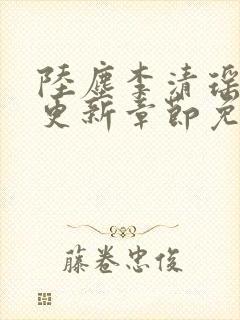 陸塵李清瑶
更新章節免
藤卷忠俊